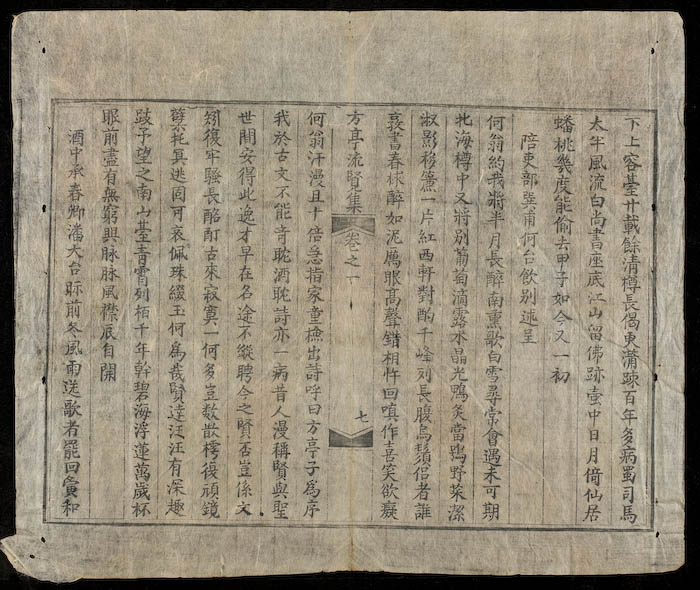 下上容臺廿載餘清樽長偈更蕭踈百年多病蜀司馬
太平風流白尚書座底江山留佛跡壺中日月倚仙居
蟠桃幾度能偷去甲子如今又一初
陪吏部巽甫何台飲別遞呈
何翁約我將半月長醉南熏歌白雪尋常會遇未可期
北海樽中又將別葡萄滴露水晶光鴨炙當鴞野菜潔
淑影移簾一片紅西軒對酌千峰列長腹烏鬚侶者誰
裵書春秋醉如泥厲眼高聲錯相忤回嗔作喜笑欲癡
方亭流賢集 卷之一 七
何翁汗漫且十倍忽指家童撫出詩呼曰方亭子為序
我於古文不能奇耽酒耽詩亦一病昔人漫稱賢與聖
世間安得此逸才早在名途不縱騁今之賢否豈係文
矧復牢騷長酩酊古來寂寞一何多豈数散樗復頑鏡
櫱秏其逃固可哀佩珠綴玉何爲哉賢達汪汪有深趣
跂予望之南山臺青霄列栢千年幹碧海浮蓮萬歲杯
眼前盡有無窮興脉脉風襟辰自開
酒中承春卿潘大台眎前冬風雨送歌者罷回爲和